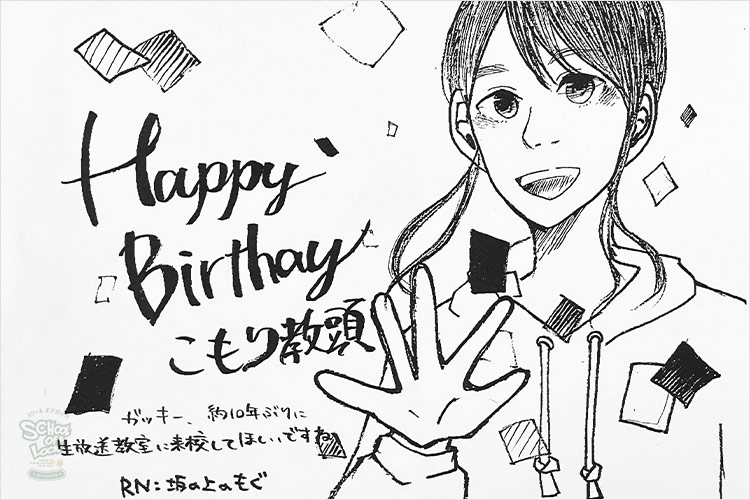 Happy
Birthay
こもり教頭
ガッキー、約10年ぶりに
生放送教室に来校してほしいですね
RN:坂の上のもぐ
SCHOOL
OF
LOCK!